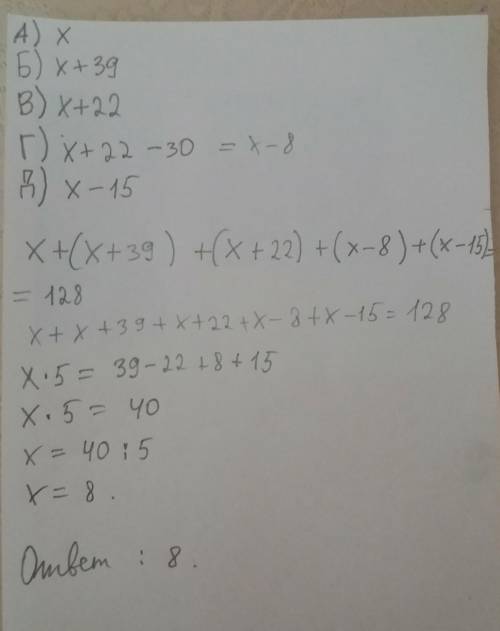 А) x
Б) x+39
В) x+22
Г) x+22-30 = x-8
Д) x-15
x+(x+39) +(x+22)+(x-8)+(x-15)=
= 128
x+x+39+x+22+x-8+x-15=128
x·5= 39-22+8+15
x·5= 40
x= 40:5
x= 8.
Ответ : 8.